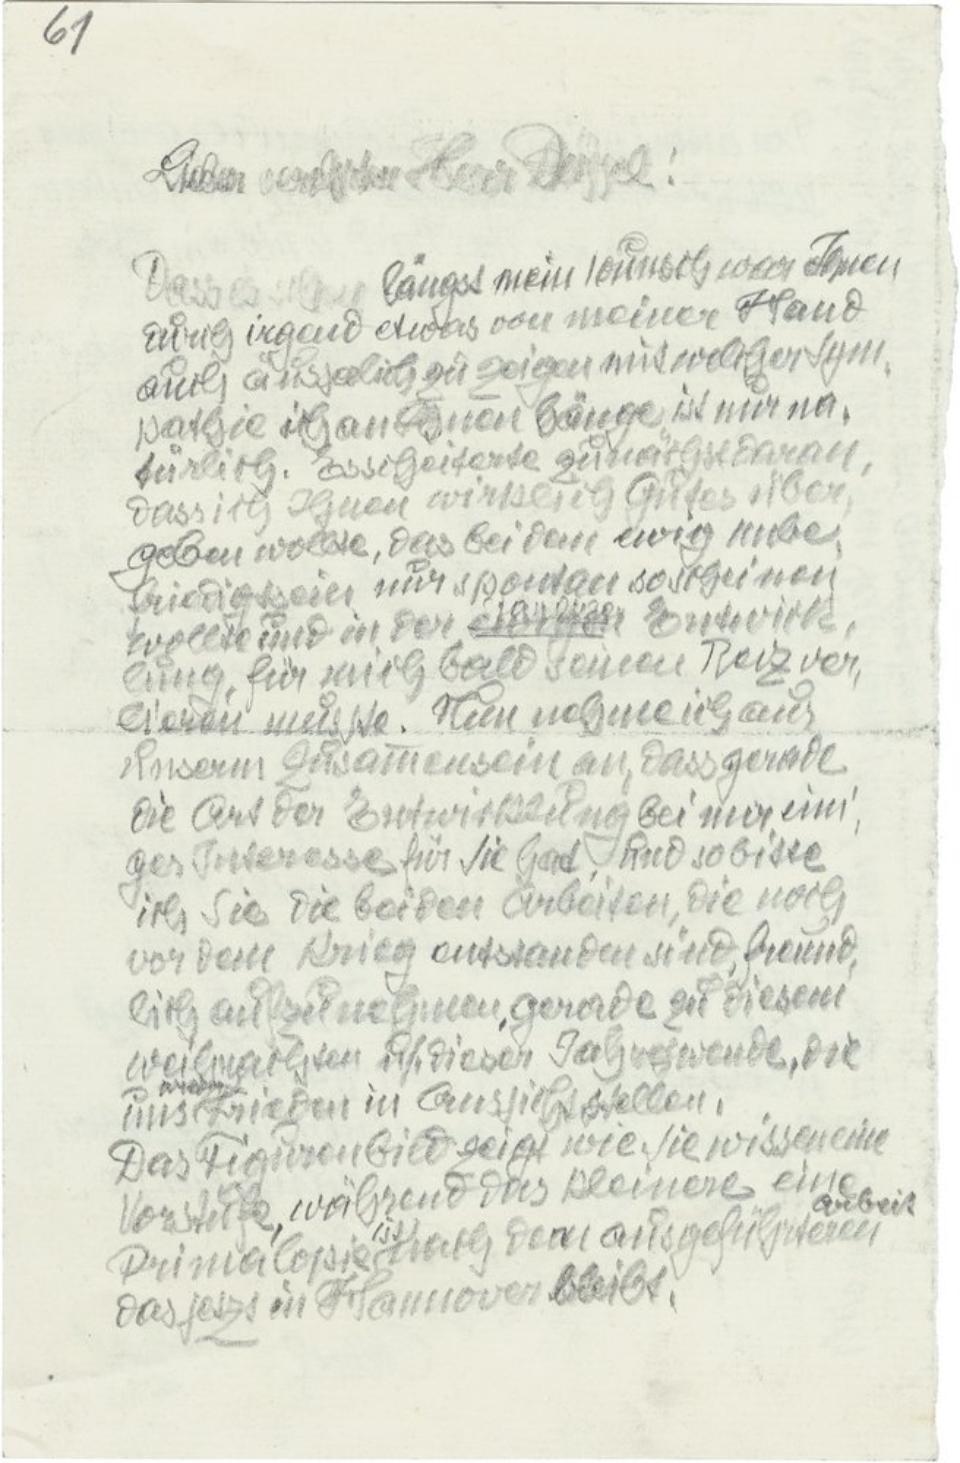 61
Lieber Herr !
Dass es schon längst mein Wunsch war Ihnen
durch irgend etwas von meiner Hand
auch äusserlich zu zeigen mit welcher Sym-
pathie ich an Ihnen hänge, ist nur na-
türlich. Es scheiterte zunächst daran,
dass ich Ihnen wirklich Gutes über-
geben wollte, das bei dem ewig unbe-
friedigtsein nur spontan so scheinen
wollte und in der Entwick-
lung, für mich bald seinen Reiz ver-
lieren musste. Nun nehme ich aus
unserm Zusam̅ensein an, dass gerade
die Art der Entwicklung bei mir eini-
ges Interesse für Sie hat, und so bitte
ich Sie die beiden Arbeiten, die noch
vor dem Krieg entstanden sind, freund-
lich aufzunehmen, gerade zu diesem
Weihnachten dieser Jahreswende, die
uns Frieden in Aussicht stellen.
Das Figurenbild zeigt wie Sie wissen eine
Vorstufe, während das kleinere eine
Primalopie ist nach dem ausgeführteren Arbeit
das jetzt in Hannover bleibt.